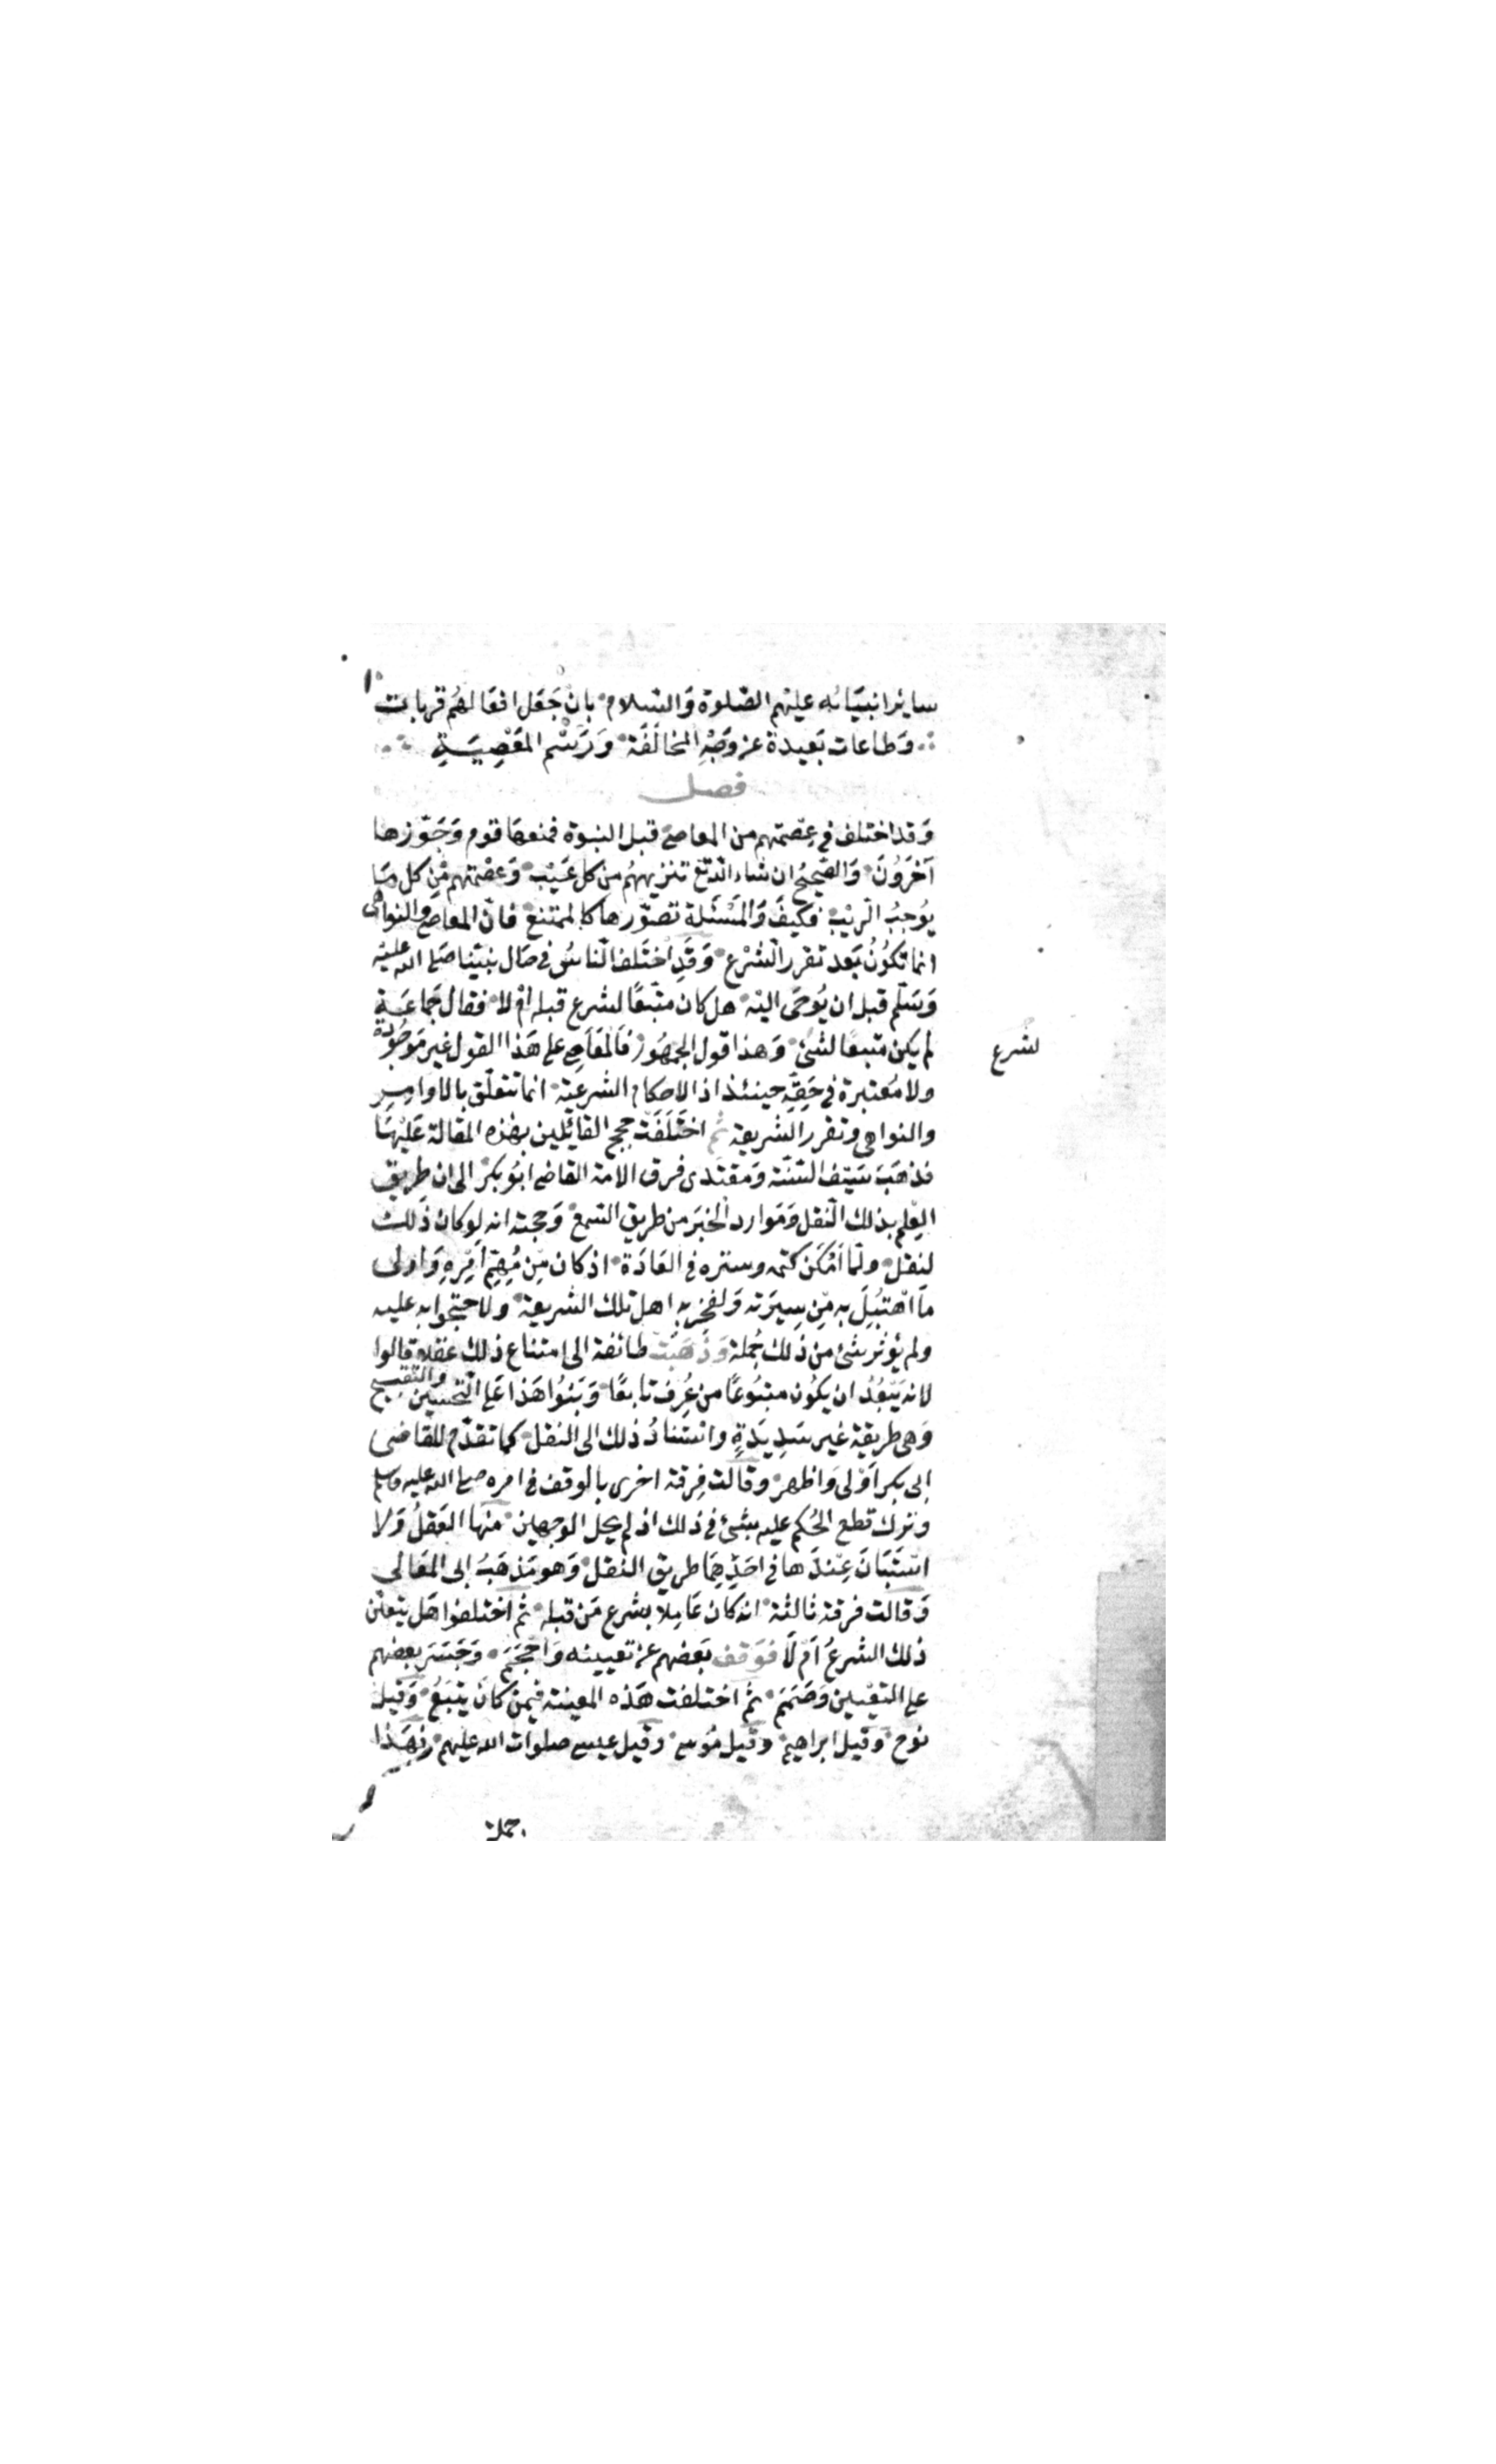 سائر انبيائه عليهم الصلوة والسلام بان جعل افعالهم قربات
وطاعات بعيدة عن وجه المخالفة ورسم المعصية
فصل
وقد اختلف في عصمتهم من المعاصي قبل النبوة فمنعها قوم وجوزها
آخرون والصحيح ان شاء الله تع تنزيههم من كل عيب وعصمتهم من كل ما
يوجب الريب فكيف والمسئلة تصورها كالممتنع فان المعاصي والنواهى
انما تكون بعد تقرر الشرع وقد اختلف الناس في حال نبينا صلى الله عليه
وسلم قبل ان يوحى اليه هل كان متبعا لشرع قبله ام لا فقال جماعة
لم يكن متبعا لشئ وهذا قول الجمهور فالمعاصي على هذا القول غير موجودة
لشرع
ولا معتبرة في حقه حينئذ اذ الاحكام الشرعية انما تتعلق بالاوامر
والنواهى وتقرر الشريعة ثم اختلفت حجج القائلين بهذه المقالة عليها
فذهب سيف السنة ومقتدى فرق الامة القاضى ابو بكر الى ان طريق
العلم بذلك النقل وموارد الخبر من طريق السمع وحجته انه لو كان ذلك
لنقل ولما امكن كتمه وستره في العادة اذ كان من مهم امره واولى
ما اهتبل به من سيرته ولفخر به اهل تلك الشريعة ولاحتجوا به عليه
ولم يؤثر شئ من ذلك جملة وذهبت طائفة الى امتناع ذلك عقلا قالوا
لانه يبعد ان يكون متبوعا من عرف تابعا وبنوا هذا على التحسين والتقبيح
وهى طريقة غير سديدة واستناد ذلك الى النقل كما تقدم للقاضى
ابى بكر اولى واظهر وقالت فرقة اخرى بالوقف في امره صلى الله عليه وسلم
وترك قطع الحكم عليه بشئ في ذلك اذ لم يحل الوجهين منها العقل ولا
استبان عندها في احدهما طريق النقل وهو مذهب ابى المعالى
وقالت فرقة ثالثة انه كان عاملا بشرع من قبله ثم اختلفوا هل يتعين
ذلك الشرع ام لا فوقف بعضهم عن تعيينه واحجم وجسر بعضهم
على التعيين وصمم ثم اختلفت هذه المعينة فيمن كان يتبع وقيل
نوح وقيل ابراهيم وقيل موسى وقيل عيسى صلوات الله عليهم فهذا
جملة